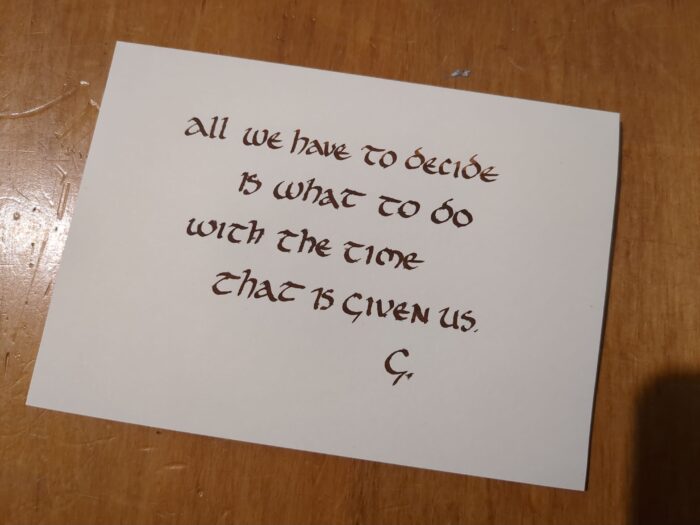 all we have to decide
is what to do
with the time
that is given us.
G.